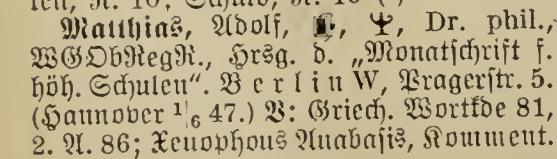 len, R. 10, Schuld, R. 10
Matthias, Adolf, Ψ, Dr. phil.,
WGObRegR., Hrsg. d. „Monatschrift f.
höh. Schulen“. Berlin W, Pragerstr. 5.
(Hannover 1/6 47.) V: Griech. Wortkde 81,
2. A. 86; Xenophons Anabasis, Komment.